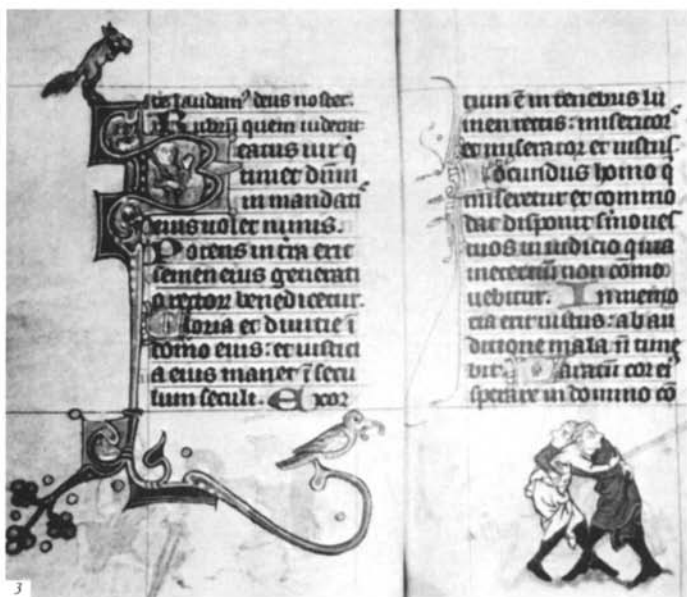 deus noster.
quem
eatus uir q̇
timet dnm̄
in mandatı̄
eius uolet nimis.
Potens in tr̄a erit
semen eius generati
o rectoꝝ benedicetur.
Gloria et diuitie ī
domo eius: et iustici
a eius manet ī secu
lum seculi. Exor
tum ē in tenebris lu
men rectis: misericor
et miserator et iustus
Iocundus homo q̇
miseretur et commo
dat disponet
suos in iudicio quia
non cōmo
uebitur. In memo
erit iustus: ab au
ditione mala n̄ time
bit. Paratū cor ei
sperare in domino cō
3